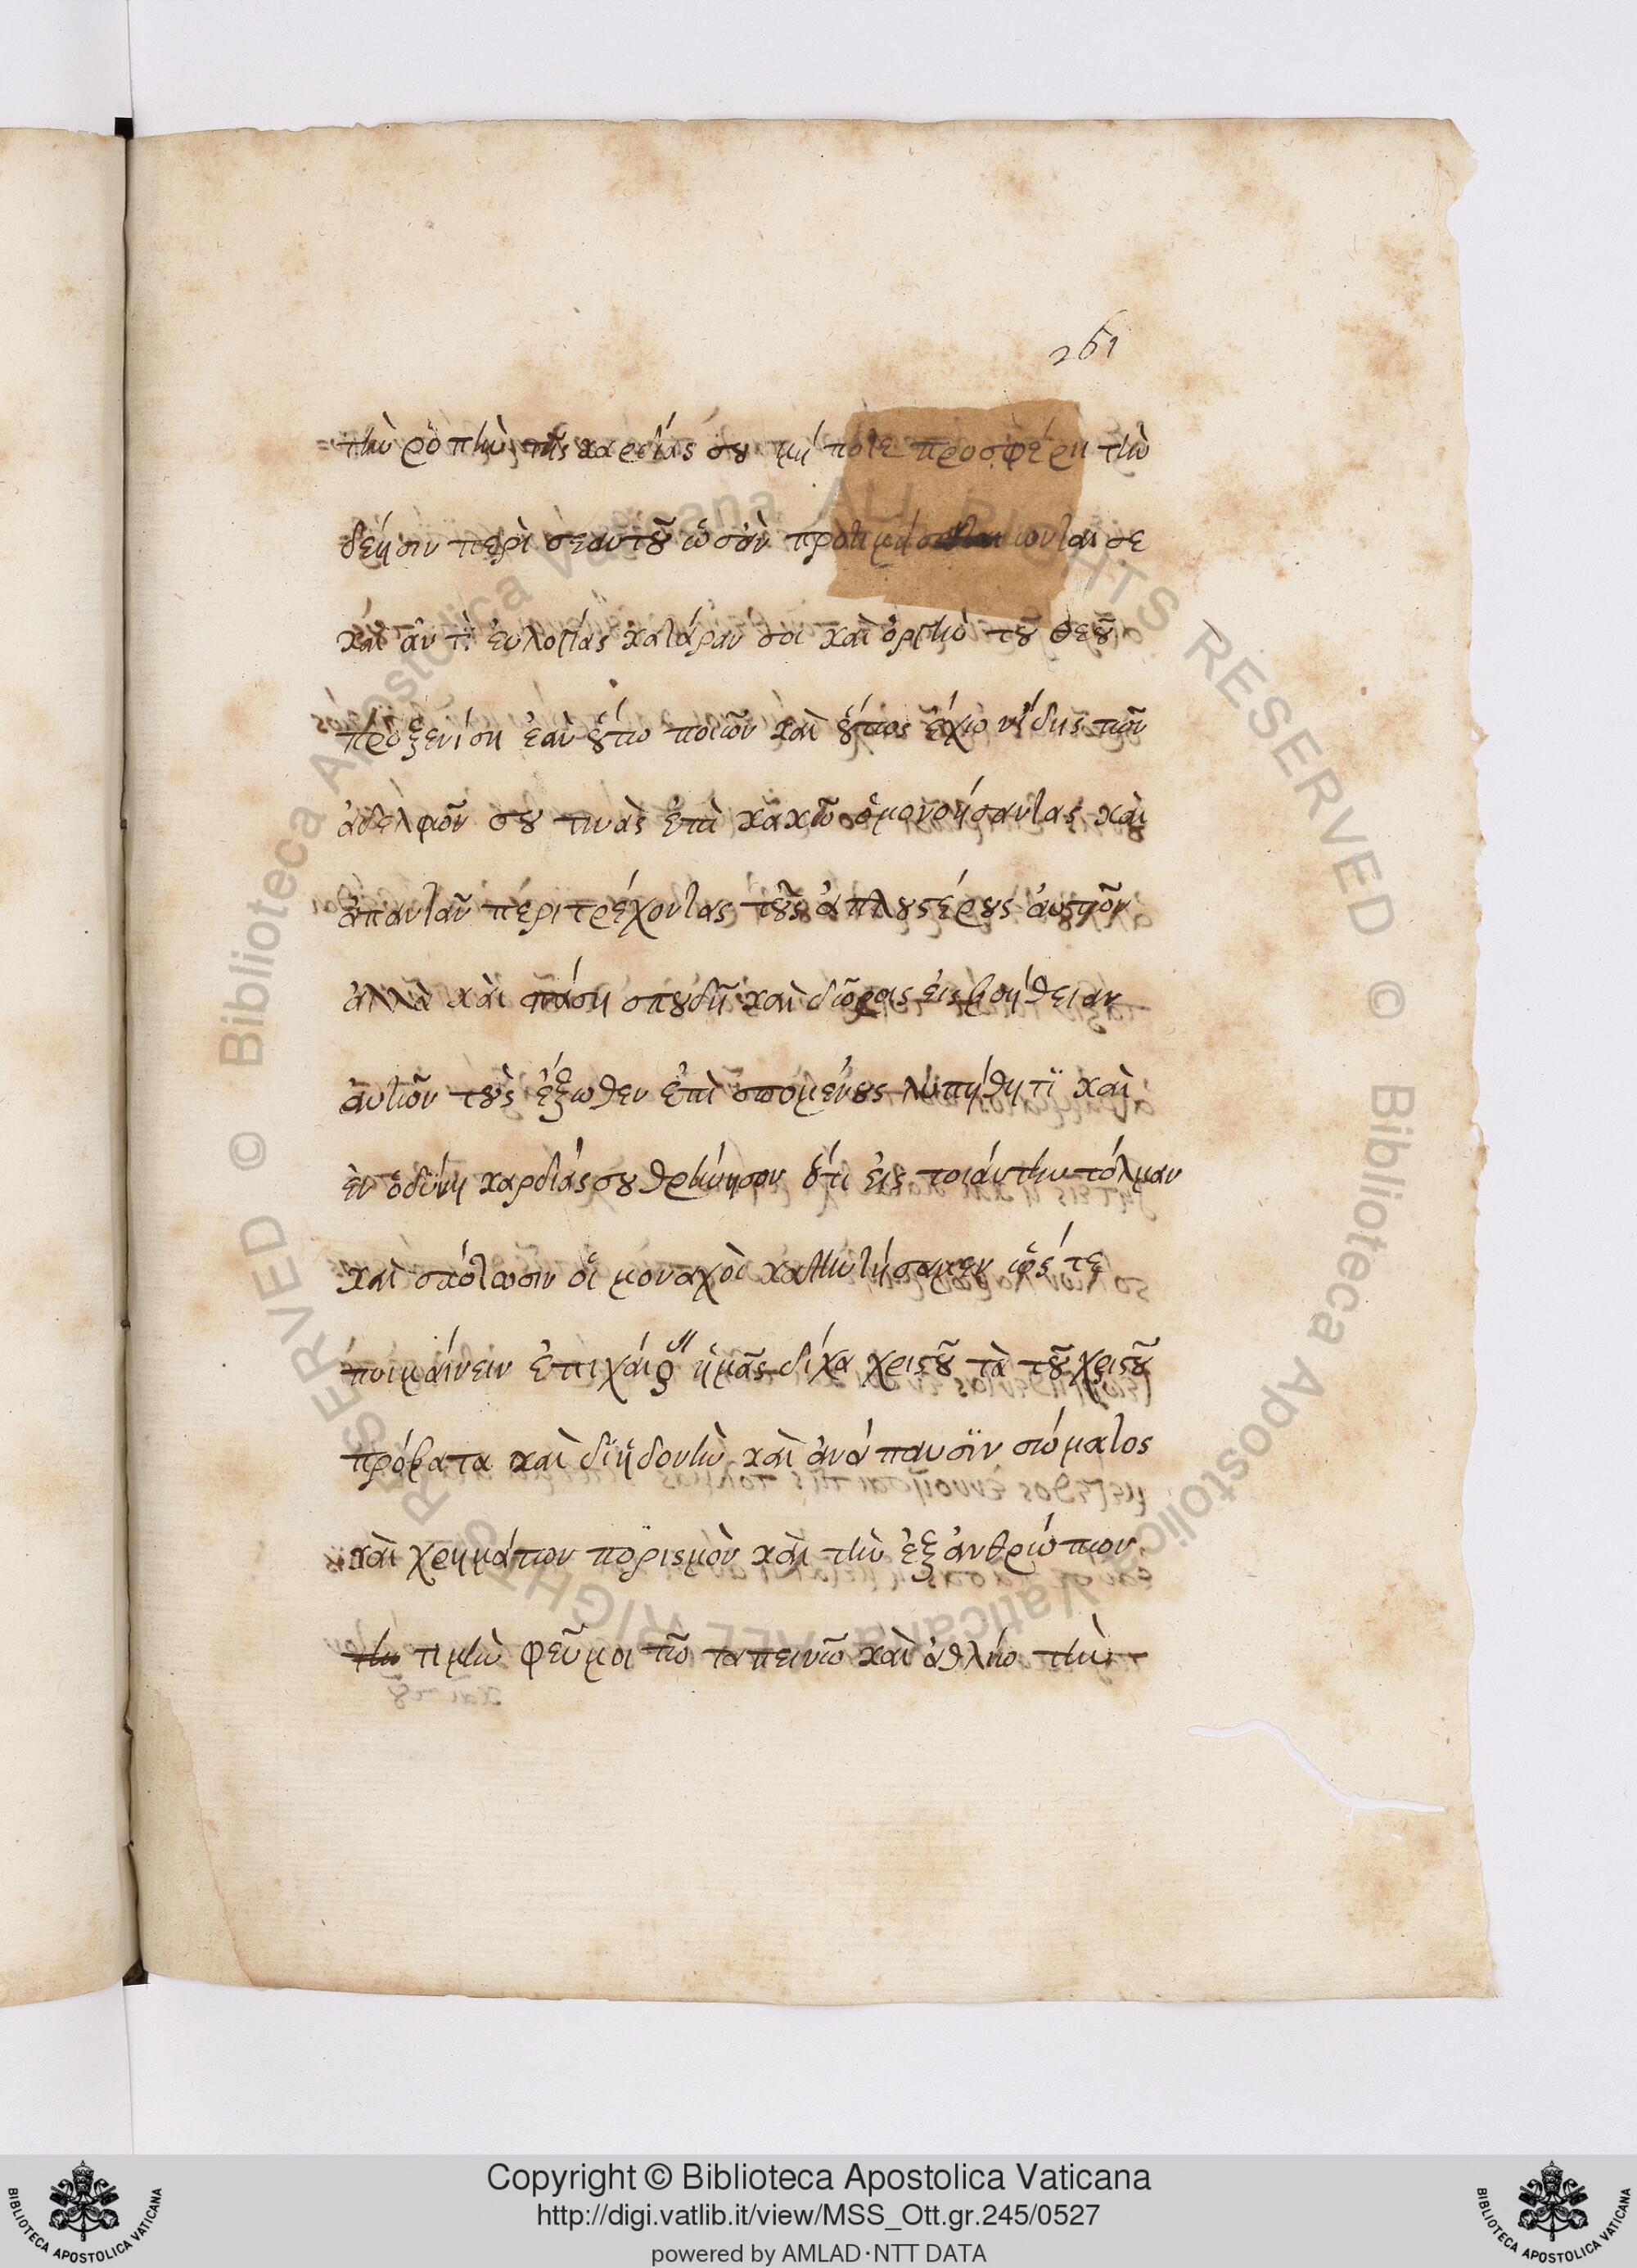 261
τὴν ῥοπὴν τῆς καρδίας σου μή ποτε προσφέρη τὴν
δέησιν περὶ σεαυτοῦ ὡσὰν προτιμήσωνταί σε
καὶ ἀντὶ εὐλογίας κατάραν σοι καὶ ὀργὴν τοῦ Θεοῦ
προξενίση ἐὰν οὕτω ποιῶν καὶ οὕτως ἔχων ἴδης τῶν
ἀδελφῶν σου τινὰς ἐπὶ κακῶ ὁμονοήσαντας καὶ
ἀπαντᾶν περιτρέχοντας τοὺς ἁπλουστέρους αὐτῶν
ἀλλὰ καὶ πάση σπουδῆ καὶ δώροις εἰς βοήθειαν
αὐτῶν τοὺς ἔξωθεν ἐπισπομένους λυπήθητϊ καὶ
ἐν ὀδύνη καρδίας σου θρήνησον ὅτι εἰς τοιάυτην τόλμαν
καὶ σκότωσιν οἱ μοναχοὶ κατηντήσαμεν ὥστε
ποιμαίνειν ἐπιχαιρ ἡμᾶς δίχα χριστοῦ τὰ τοῦ χριστοῦ
πρόβατα καὶ δι ἡδονὴν καὶ ἀνάπαυσϊν σώματος
καὶ χρημάτων πορισμὸν καὶ τὴν ἐξ ἀνθρώπων
τὴν τιμὴν φεῦ μοι τῶ ταπεινῶ καὶ ἀθλίω τὴν
Copyright © Biblioteca Apostolica Vaticana
http://digi.vatlib.it/view/MSS_Ott.gr.245/0527
powered by AMLAD·NTT DATA
BIBLIOTECA APOSTOLICA VATICANA
BIBLIOTECA APOSTOLICA VATICANA
© Biblioteca Apostolica Vaticana ALL RIGHTS RESERVED © Biblioteca Apostolica Vaticana ALL RIGHTS RESERVED